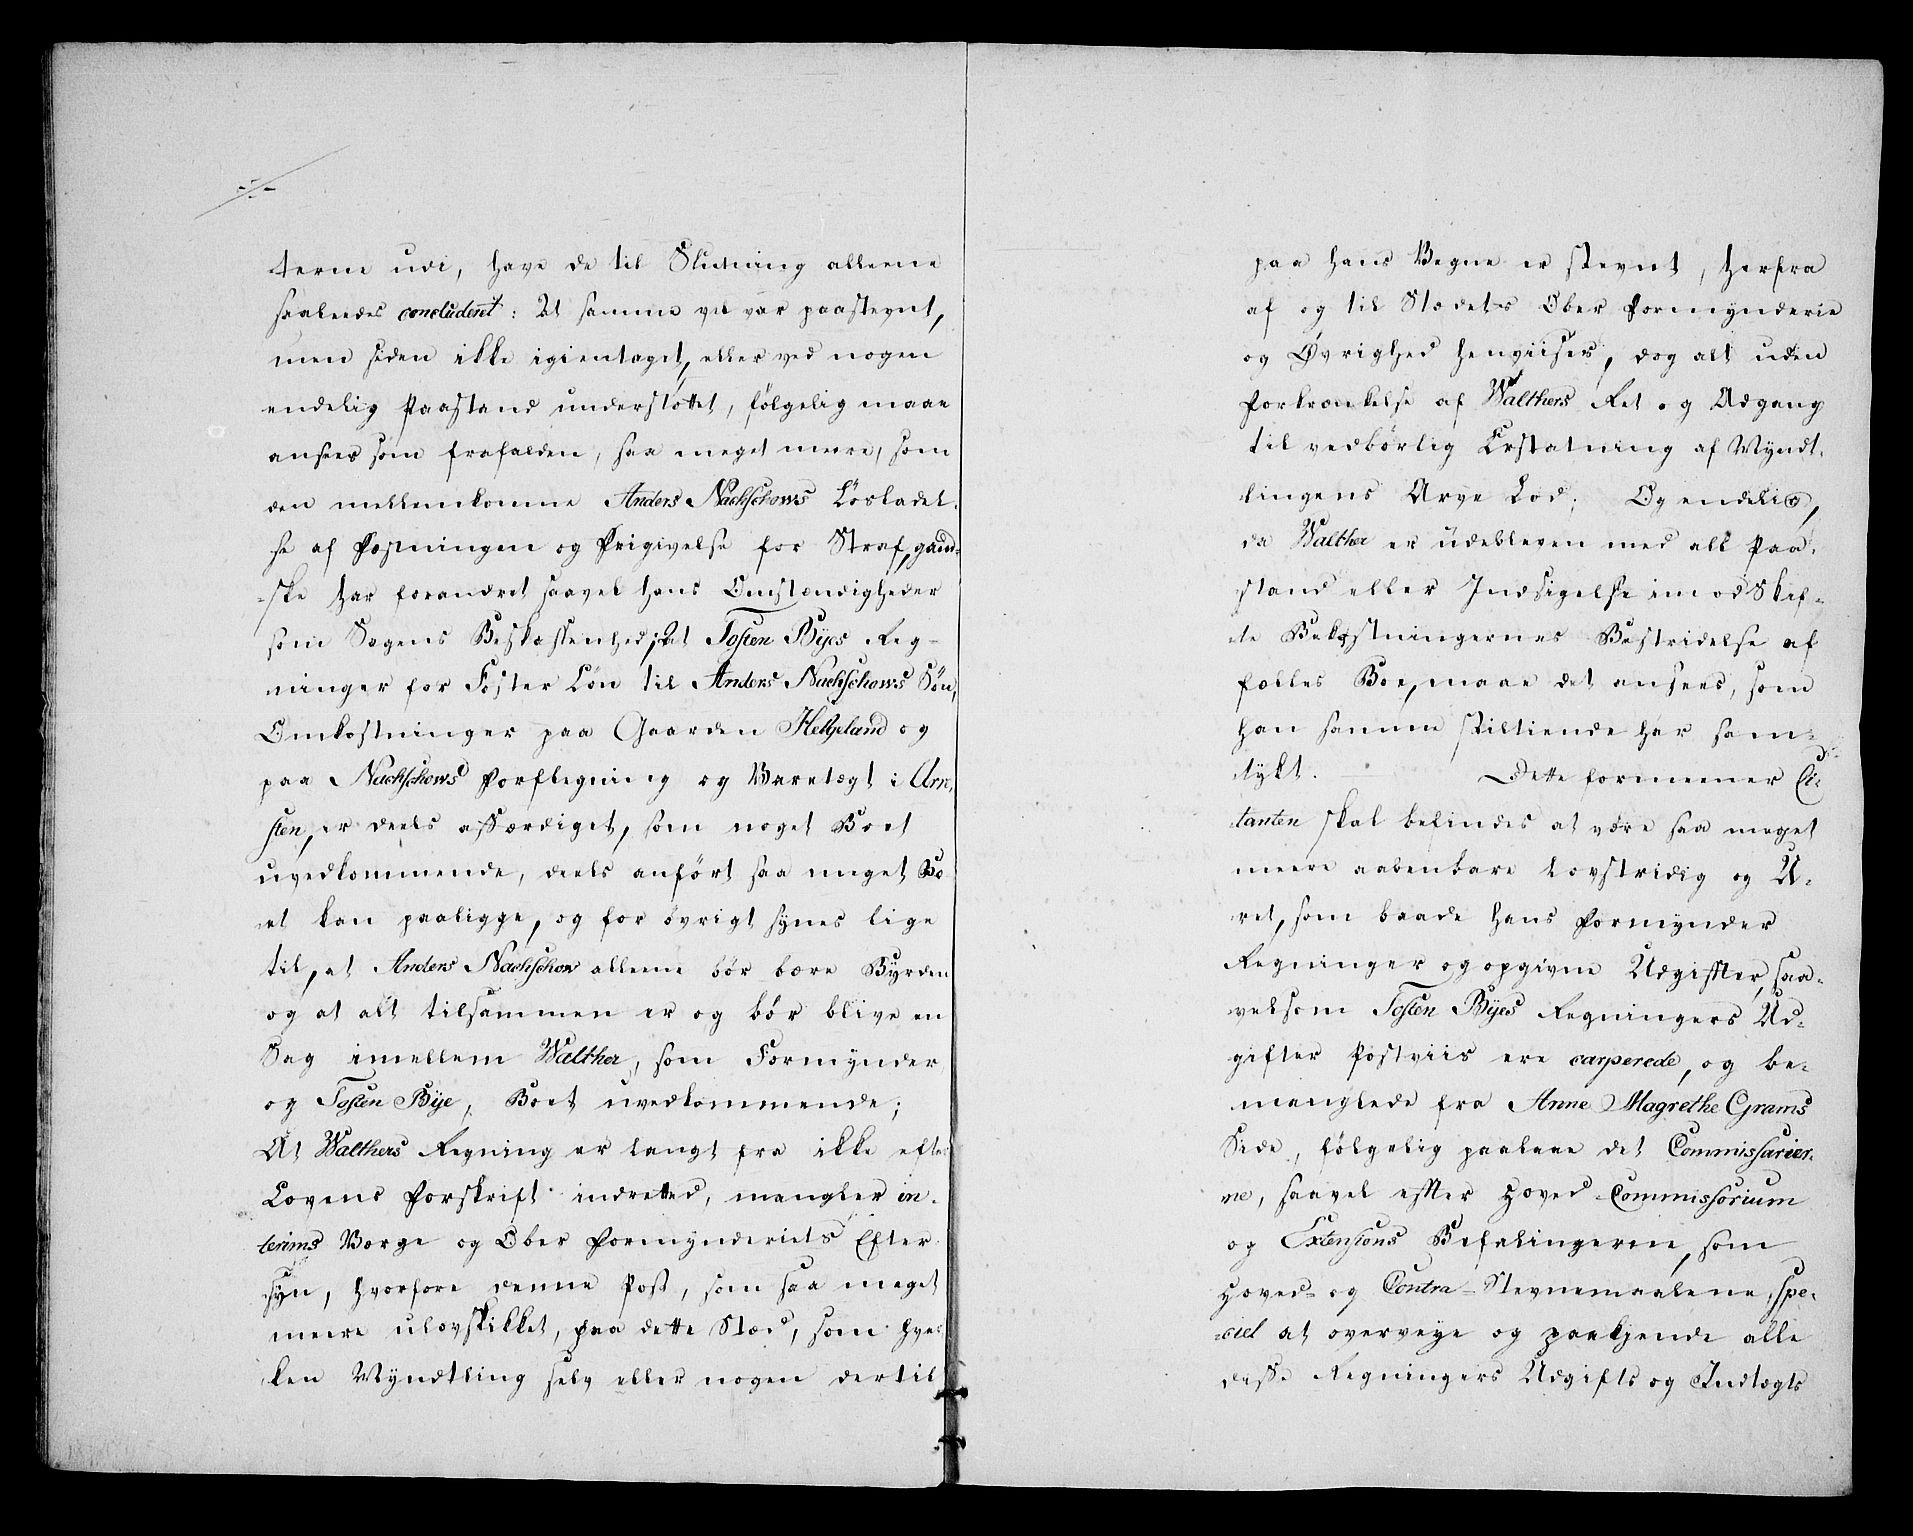 terne udi, have de til Slutning alleene
saaleedes concluderet: At samme vel var paastevnt,
men siden ikke igientaget, eller ved nogen
endelig Paastand understöttet, fölgelig maae
ansees som frafalden, saa meget meere, som
den mellemkomne Anders Nachschows Lösladel-
se af Fæstningen og Frigivelse for Straf, gand-
-ske har forandret saavel hans Omstændigheder
som Sagens Beskaffenhed; At Tosten Byes Reg-
ninger for Foster Lön til Anders Nachschows Sön,
Omkostninger paa Gaarden Helgeland og
paa Nachschows Forflegning og Varetægt i Arre-
sten, er deels affærdiget, som noget Boet
uvedkommende, deels anfört saa meget Bo
et kan paaligge, og for övrigt synes lige
til, at Anders Nachschow alleene bör bære Byrden
og at alt tilsammen er og bör blive en
Sag imellem Walther, som Formynder
og Tosten Bye, Boet uvedkommende;
At Walthers Regning er langt fra ikke efter
Lovens Forskrift indretted, mangler in-
terims Værge og Ober Formynderiets Efter
syn, hvorfore denne Post, som saa meget
meere ulovskikket, paa dette Stæd, som hver
ken Myndtling selv eller nogen dertil
paa hans Vegne er stevnt, herfra
af og til Stædets Ober Formynderie
og Øvrighed henviises, dog alt uden
Forkrænkelse af Walthers Ret og Adgang
til vedbörlig Erstatning af Myndt-
lingens Arve Lod; Og endelig,
da Walther er udebleven med all Paa-
stand eller Indsigelse imod Skif-
te Bekostningernes Bestridelse af
fælles Boe, maae det ansees, som
han samme stiltiende har sam-
tykt. Dette formeener Ci-
tanten skal befindes at være saa meget
meere aabenbare Lovstridig og U-
ret, som baade hans Formynder
Regninger og opgivne Udgiffter, saa-
velsom Tosten Byes Regningers Ud-
gifter Postviis ere carperede, og be-
manglede fra Anne Magrethe Grams
Side, fölgelig paalaae det Commissarier-
ne, saavel effter Hoved-Commissorium
og Extensions Befalingerne, som
Hoved- og Contra-Stevnemaalene, spe-
-ciel at overveye og paakjende alle
disse Regningers Udgifts og Indtægts